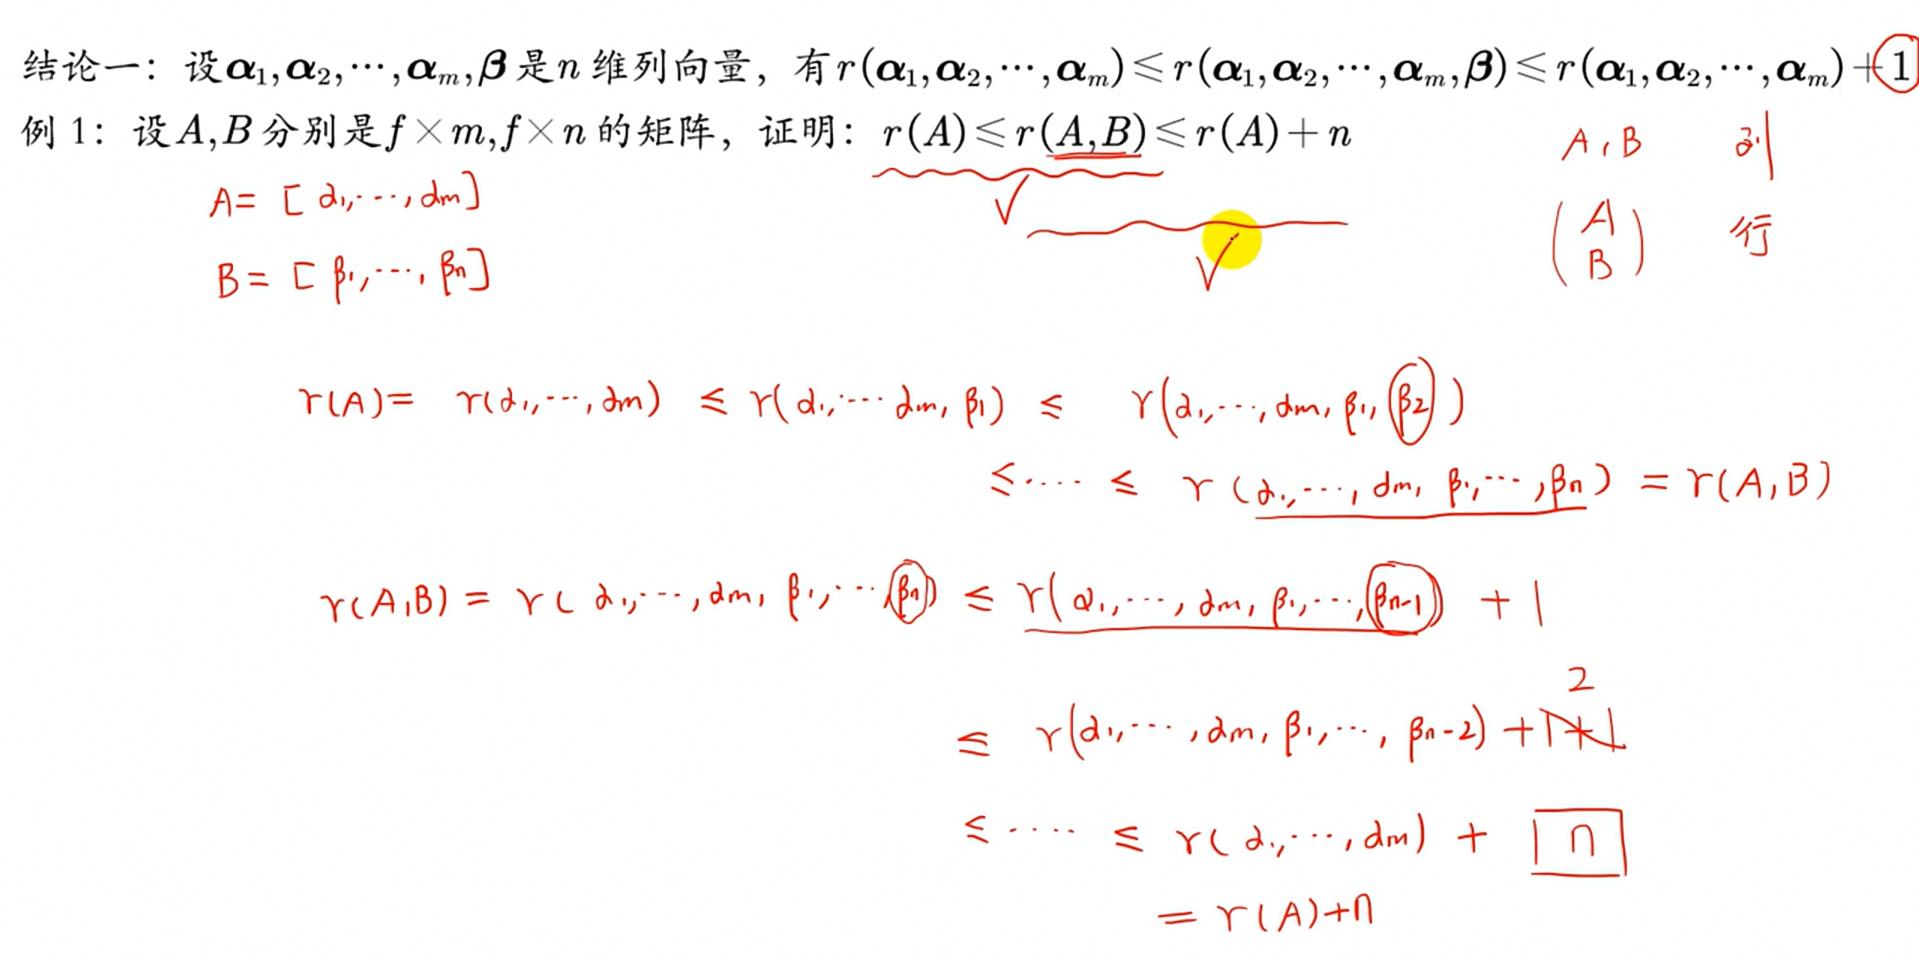 结论一：设α₁,α₂,⋯,αₘ,β是n维列向量，有r(α₁,α₂,⋯,αₘ)⩽r(α₁,α₂,⋯,αₘ,β)⩽r(α₁,α₂,⋯,αₘ)+1
例1：设A,B分别是f×m,f×n的矩阵，证明：r(A)⩽r(A,B)⩽r(A)+n
A,B 列
A= [α₁,⋯,αm]
(A B) 行
B= [β₁,⋯,βn]
r(A)= r(α₁,⋯,αm) ≤ r(α₁,⋯αm,β₁) ≤ r(α₁,⋯,αm,β₁,β₂)
≤⋯⋅ ≤ r(α₁,⋯,αm,β₁,⋯,βn) = r(A,B)
r(A,B) = r(α₁,⋯,αm,β₁,⋯,βn) ≤ r(α₁,⋯,αm,β₁,⋯,βn-1) + 1
2
≤ r(α₁,⋯,αm,β₁,⋯,βn-2) + 1+1
≤ ⋯⋅ ≤ r(α₁,⋯,αm) + n
= r(A)+n